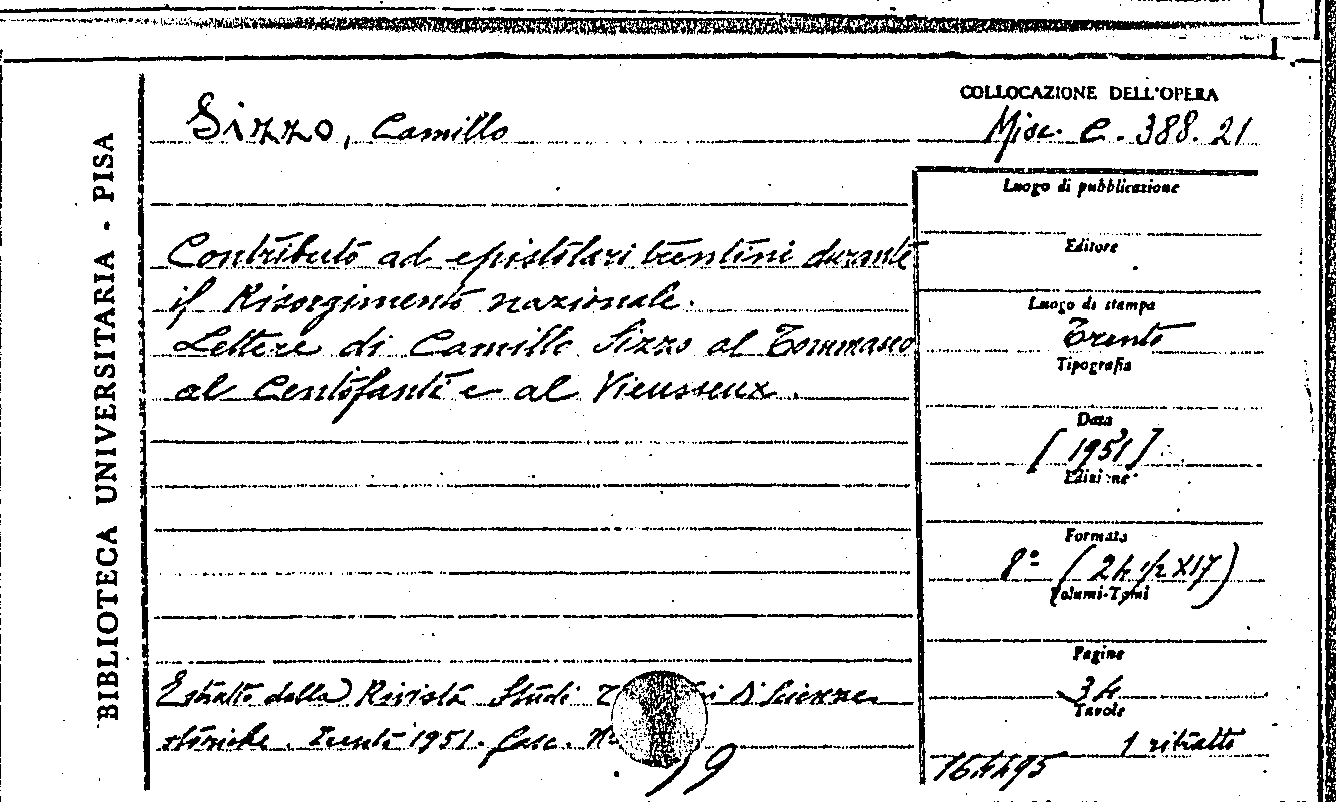 BIBLIOTECA UNIVERSITARIA - PISA
Sizzo, Camillo
Contributo ad epistolari trentini durante
il Risorgimento nazionale.
Lettere di Camillo Sizzo al Tommaseo
al Centofanti e al Vieusseux.
Estratto dalla Rivista Studi di Scienze
storiche. Trento 1951. fasc. N°
COLLOCAZIONE DELL'OPERA
Misc. C. 388. 21
Luogo di pubblicazione
Editore
Luogo di stampa
Trento
Tipografia
Data
[1951]
Edizione
Formato
8° (24 1/2 X17)
Volumi-Tomi
Pagine
34
Tavole
1 ritratto
164495